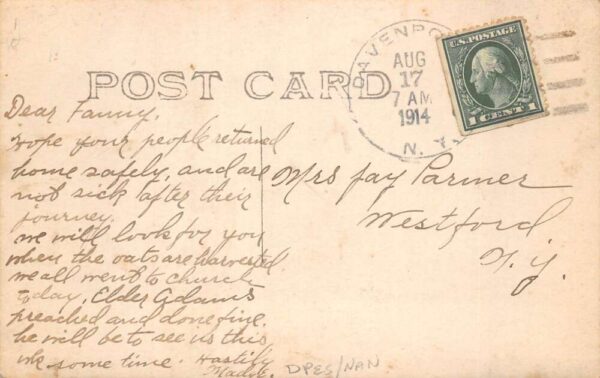 POST CARD
DAVENPORT
AUG
17
7 AM
1914
N. Y.
U.S. POSTAGE
1 CENT 1
Dear Fanny,
Hope your people returned
home safely, and are
not sick after their
journey.
we will look for you
when the oats are harvested
we all went to church
today, Elder Adams
preached and done fine.
he will be to see us this
wk some time. Hastily
Mrs Jay Parmer
Westford
N. Y.
DPES/NAN